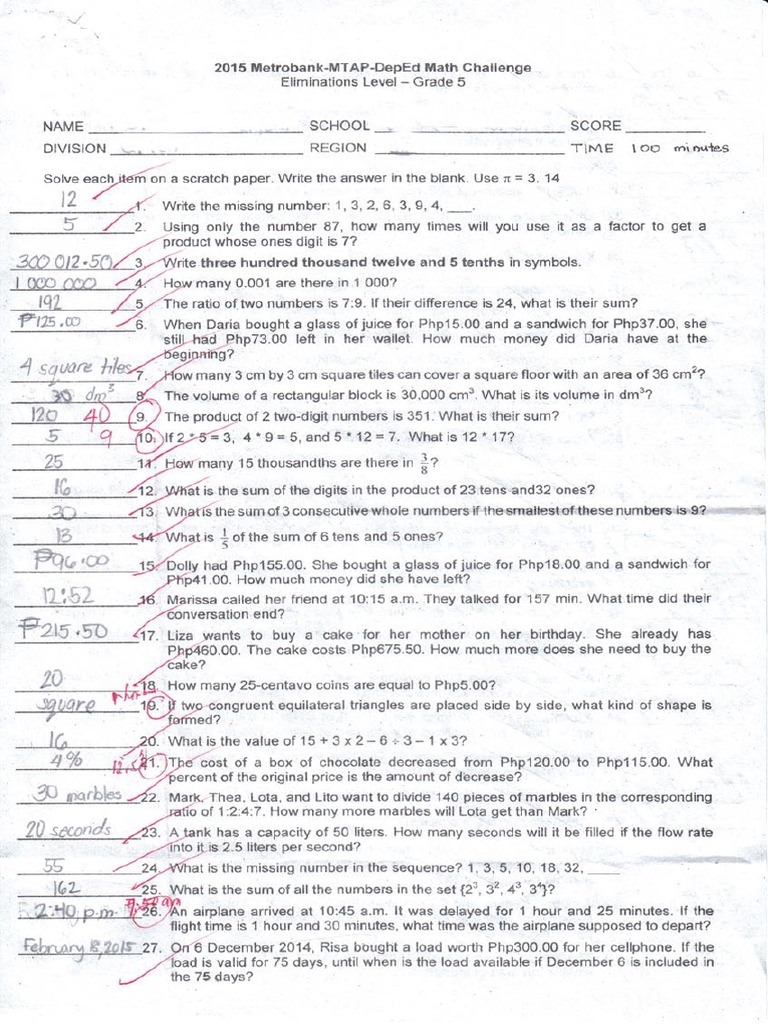 2015 Metrobank-MTAP-DepEd Math Challenge
Eliminations Level – Grade 5
NAME ____ SCHOOL ____ SCORE ____
DIVISION ____ REGION ____ TIME 100 minutes
Solve each item on a scratch paper. Write the answer in the blank. Use π = 3. 14
12 1. Write the missing number: 1, 3, 2, 6, 3, 9, 4, ___.
5 2. Using only the number 87, how many times will you use it as a factor to get a
product whose ones digit is 7?
300 012.50 3. Write three hundred thousand twelve and 5 tenths in symbols.
1 000 000 4. How many 0.001 are there in 1 000?
192 5. The ratio of two numbers is 7:9. If their difference is 24, what is their sum?
₱125.00 6. When Daria bought a glass of juice for Php15.00 and a sandwich for Php37.00, she
still had Php73.00 left in her wallet. How much money did Daria have at the
beginning?
4 square tiles 7. How many 3 cm by 3 cm square tiles can cover a square floor with an area of 36 cm²?
30 dm³ 8. The volume of a rectangular block is 30,000 cm³. What is its volume in dm³?
120 40 9. The product of 2 two-digit numbers is 351. What is their sum?
5 9 10. If 2 * 5 = 3, 4 * 9 = 5, and 5 * 12 = 7. What is 12 * 17?
25 11. How many 15 thousandths are there in 3/8?
16 12. What is the sum of the digits in the product of 23 tens and32 ones?
30 13. What is the sum of 3 consecutive whole numbers if the smallest of these numbers is 9?
13 14. What is 1/5 of the sum of 6 tens and 5 ones?
₱96.00 15. Dolly had Php155.00. She bought a glass of juice for Php18.00 and a sandwich for
Php41.00. How much money did she have left?
12:52 16. Marissa called her friend at 10:15 a.m. They talked for 157 min. What time did their
conversation end?
₱215.50 17. Liza wants to buy a cake for her mother on her birthday. She already has
Php460.00. The cake costs Php675.50. How much more does she need to buy the
cake?
20 18. How many 25-centavo coins are equal to Php5.00?
square 19. If two congruent equilateral triangles are placed side by side, what kind of shape is
formed?
16 20. What is the value of 15 + 3 x 2 – 6 ÷ 3 – 1 x 3?
4% 21. The cost of a box of chocolate decreased from Php120.00 to Php115.00. What
percent of the original price is the amount of decrease?
30 marbles 22. Mark, Thea, Lota, and Lito want to divide 140 pieces of marbles in the corresponding
ratio of 1:2:4:7. How many more marbles will Lota get than Mark?
20 seconds 23. A tank has a capacity of 50 liters. How many seconds will it be filled if the flow rate
into it is 2.5 liters per second?
55 24. What is the missing number in the sequence? 1, 3, 5, 10, 18, 32, ___
162 25. What is the sum of all the numbers in the set {2³, 3², 4³, 3⁴}?
2:40 p.m. 7:50 am 26. An airplane arrived at 10:45 a.m. It was delayed for 1 hour and 25 minutes. If the
flight time is 1 hour and 30 minutes, what time was the airplane supposed to depart?
February 18, 2015 27. On 6 December 2014, Risa bought a load worth Php300.00 for her cellphone. If the
load is valid for 75 days, until when is the load available if December 6 is included in
the 75 days?